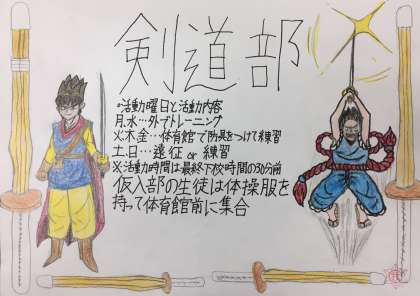 剣道部
○活動曜日と活動内容
月、水…外でトレーニング
火、木、金…体育館で防具をつけて練習
土、日…遠征or練習
※活動時間は最終下校時間の30分前
仮入部の生徒は体操服を
持って体育館前に集合